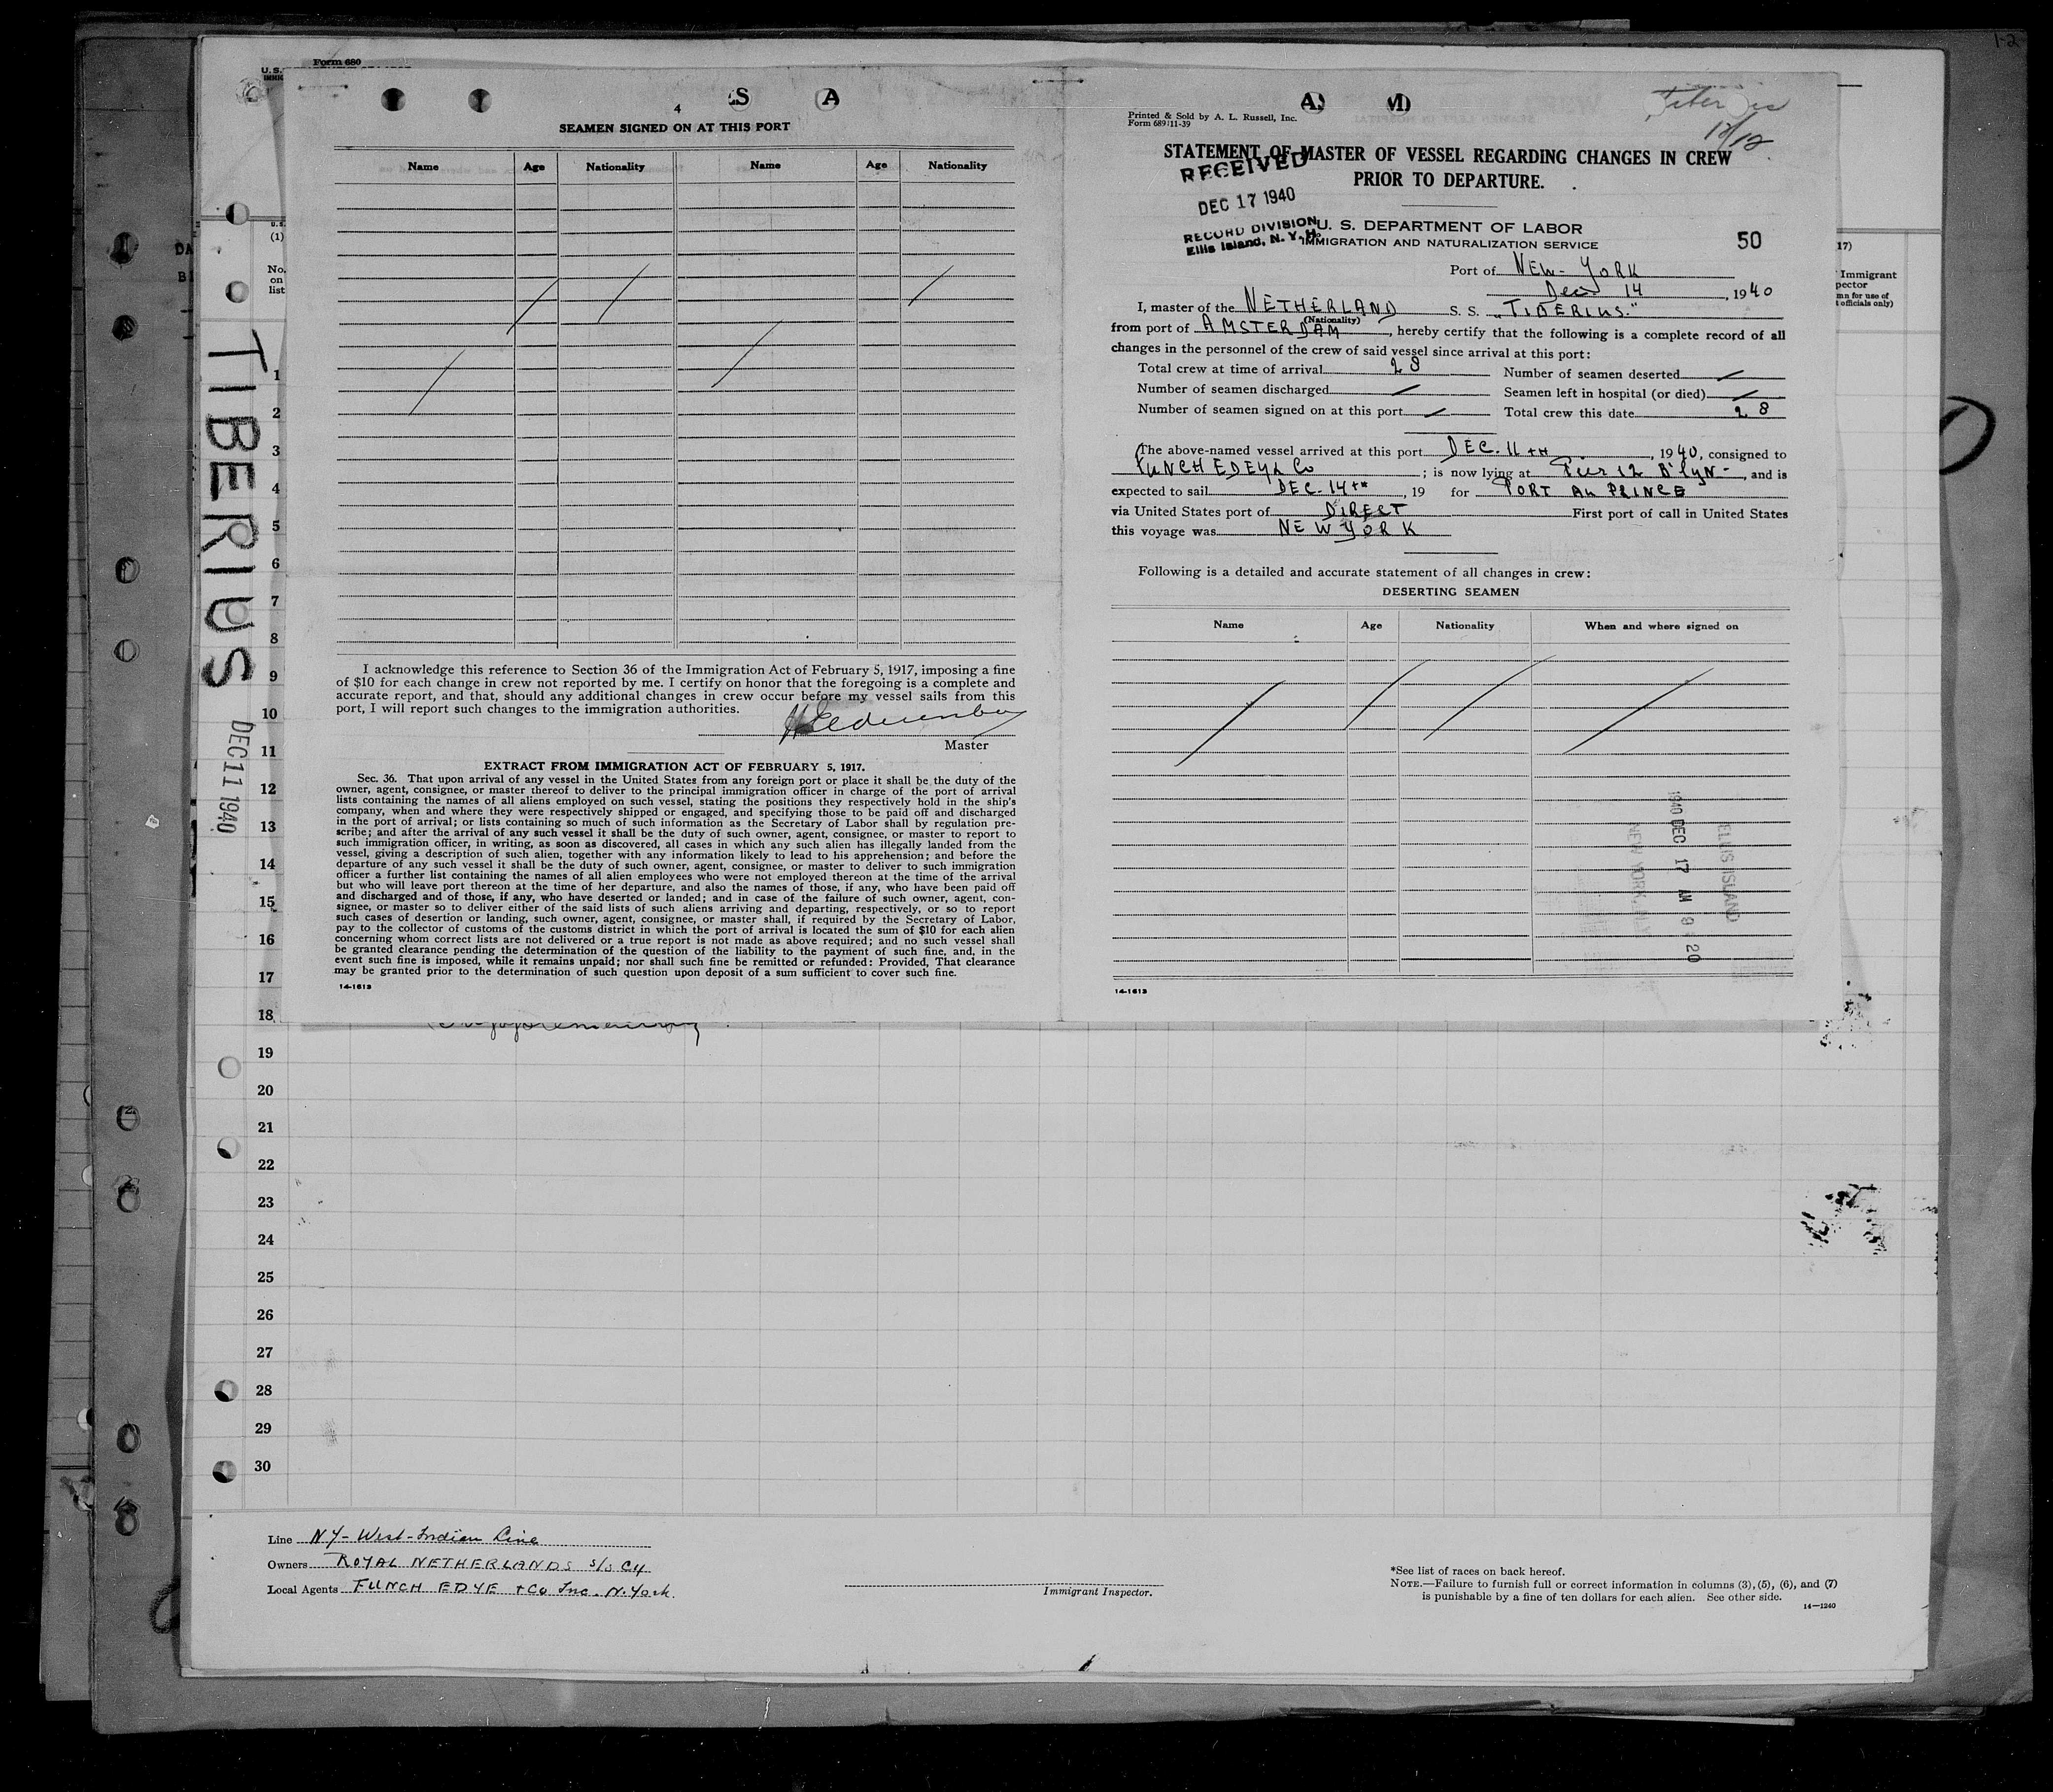 1-2
Form 680
U. S.
TIBERIUS
DEC 11 1940
(1)
No.
on
list
1
2
3
4
5
6
7
8
9
10
11
12
13
14
15
16
17
18
19
20
21
22
23
24
25
26
27
28
29
30
4
SEAMEN SIGNED ON AT THIS PORT
Name Age Nationality Name Age Nationality
I acknowledge this reference to Section 36 of the Immigration Act of February 5, 1917, imposing a fine
of $10 for each change in crew not reported by me. I certify on honor that the foregoing is a complete and
accurate report, and that, should any additional changes in crew occur before my vessel sails from this
port, I will report such changes to the immigration authorities.
Master
EXTRACT FROM IMMIGRATION ACT OF FEBRUARY 5, 1917.
Sec. 36. That upon arrival of any vessel in the United States from any foreign port or place it shall be the duty of the
owner, agent, consignee, or master thereof to deliver to the principal immigration officer in charge of the port of arrival
lists containing the names of all aliens employed on such vessel, stating the positions they respectively hold in the ship's
company, when and where they were respectively shipped or engaged, and specifying those to be paid off and discharged
in the port of arrival; or lists containing so much of such information as the Secretary of Labor shall by regulation pre-
scribe; and after the arrival of any such vessel it shall be the duty of such owner, agent, consignee, or master to report to
such immigration officer, in writing, as soon as discovered, all cases in which any such alien has illegally landed from the
vessel, giving a description of such alien, together with any information likely to lead to his apprehension; and before the
departure of any such vessel it shall be the duty of such owner, agent, consignee, or master to deliver to such immigration
officer a further list containing the names of all alien employees who were not employed thereon at the time of the arrival
but who will leave port thereon at the time of her departure, and also the names of those, if any, who have been paid off
and discharged and of those, if any, who have deserted or landed; and in case of the failure of such owner, agent, con-
signee, or master so to deliver either of the said lists of such aliens arriving and departing, respectively, or so to report
such cases of desertion or landing, such owner, agent, consignee, or master shall, if required by the Secretary of Labor,
pay to the collector of customs of the customs district in which the port of arrival is located the sum of $10 for each alien
concerning whom correct lists are not delivered or a true report is not made as above required; and no such vessel shall
be granted clearance pending the determination of the question of the liability to the payment of such fine, and, in the
event such fine is imposed, while it remains unpaid; nor shall such fine be remitted or refunded: Provided, That clearance
may be granted prior to the determination of such question upon deposit of a sum sufficient to cover such fine.
14-1613
Printed & Sold by A. L. Russell, Inc.
Form 689:11-39
12/12
STATEMENT OF MASTER OF VESSEL REGARDING CHANGES IN CREW
PRIOR TO DEPARTURE.
RECEIVED
DEC 17 1940
RECORD DIVISION
Ellis Island, N. Y. H.
U. S. DEPARTMENT OF LABOR
IMMIGRATION AND NATURALIZATION SERVICE
50
Port of NEW-YORK
Dec 14, 1940
I, master of the NETHERLAND S. S. "TIBERIUS."
(Nationality)
from port of AMSTERDAM, hereby certify that the following is a complete record of all
changes in the personnel of the crew of said vessel since arrival at this port:
Total crew at time of arrival 28 Number of seamen deserted
Number of seamen discharged Seamen left in hospital (or died)
Number of seamen signed on at this port Total crew this date 28
The above-named vessel arrived at this port DEC. 11th, 1940, consigned to
FUNCH EDEY & Co; is now lying at Pier 12 B'lyN-, and is
expected to sail DEC. 14th, 19 for PORT Au PRINCE
via United States port of DIRECT First port of call in United States
this voyage was NEW YORK
Following is a detailed and accurate statement of all changes in crew:
DESERTING SEAMEN
Name Age Nationality When and where signed on
1940 DEC 17 AM 9 20
ELLIS ISLAND
NEW YORK, N.Y.
14-1613
17)
Immigrant
Line NY-West-Indian Line
Owners ROYAL NETHERLANDS s/s Cy
Local Agents FUNCH EDYE + Co Inc. N. York.
Immigrant Inspector.
*See list of races on back hereof.
NOTE.—Failure to furnish full or correct information in columns (3), (5), (6), and (7)
is punishable by a fine of ten dollars for each alien. See other side.
14—1240